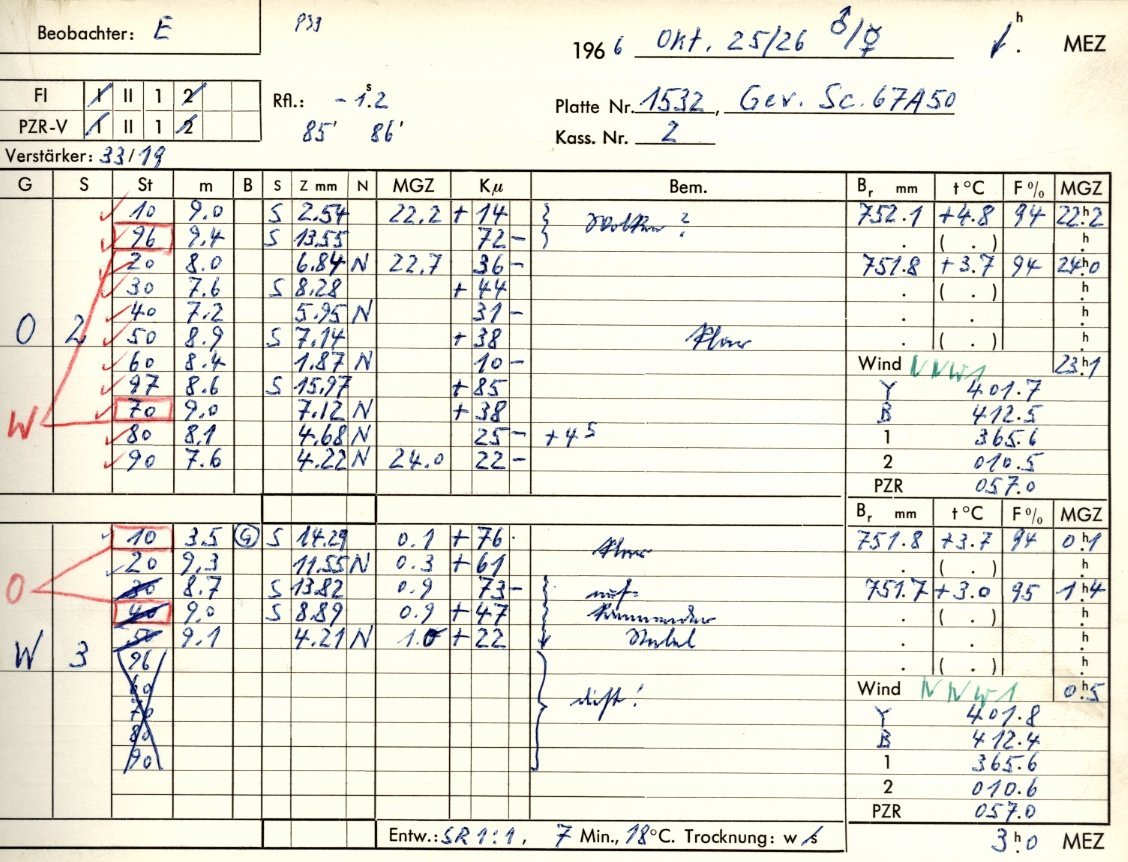 Beobachter: E
PSJ
1966 Okt. 25/26 ♂/☿ h . MEZ
FI I II 1 2
PZR-V I II 1 2
Rfl.: - 1ˢ.2
85' 86'
Platte Nr. 1532, Gev. Sc. 67A50
Kass. Nr. 2
Verstärker: 33/19
G S St m B S Z mm N MGZ Kμ Bem. Br mm t °C F % MGZ
10 9.0 S 2.54 22,2 + 14 752.1 +4.8 94 22ʰ.2
96 9.4 S 13.55 72 - . ( . ) h
20 8.0 6.84 N 22,7 36 - 751.8 +3.7 94 24ʰ.0
30 7.6 S 8.28 + 44 . ( . ) h
40 7.2 5.95 N 31 - . . h
O 2 50 8.9 S 7.14 + 38 . ( . ) h
60 8.4 1.87 N 10 - Wind NNW1 23ʰ.1
97 8.6 S 15.97 + 85 Y 401.7
W 70 9.0 7.12 N + 38 B 412.5
80 8.1 4.68 N 25 - +45 1 365.6
90 7.6 4.22 N 24.0 22 - 2 010.5
PZR 057.0
Br mm t °C F % MGZ
10 3.5 G S 14.29 0.1 + 76 751.8 +3.7 94 0ʰ.1
20 9.3 11.55 N 0.3 + 61 . ( . ) h
O 30 8.7 S 13.82 0.9 73 - 751.7 +3.0 95 1ʰ.4
40 9.0 S 8.89 0.9 + 47 . ( . ) h
50 9.1 4.21 N 1.0 + 22 Nebel . . h
W 3 96 . ( . ) h
60 dicht! Wind NNW1 0ʰ.5
70 Y 401.8
80 B 412.4
90 1 365.6
2 010.6
PZR 057.0
Entw.: SR 1:1, 7 Min., 18°C. Trocknung: w/s 3ʰ.0 MEZ